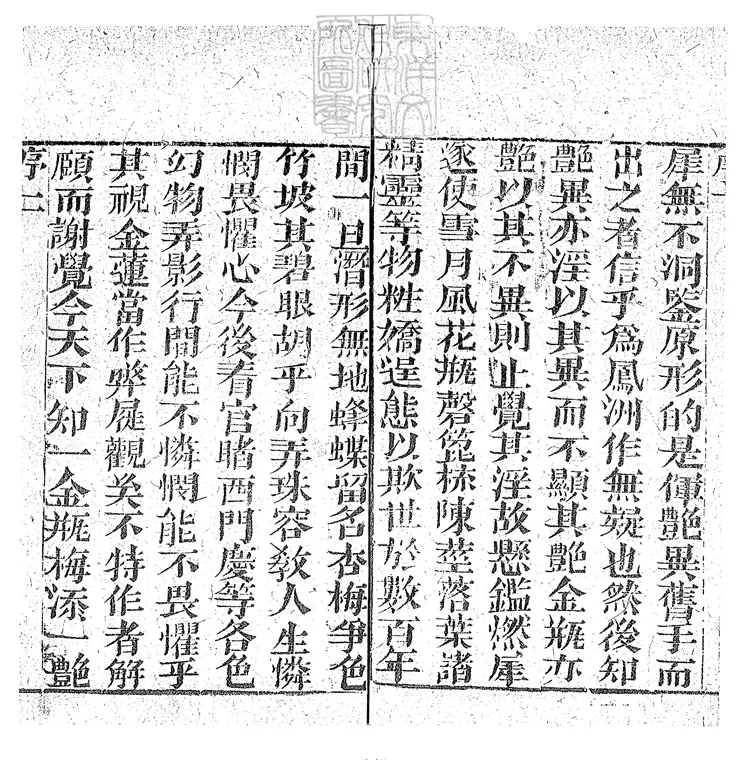 犀無不洞鑒原形的是渾艷異舊手而
出之者信乎爲鳳洲作無疑也然後知
艷異亦淫以其異而不顯其艷金瓶亦
艷以其不異則止覺其淫故懸鑑燃犀
遂使雪月風花瓶磬篦梳陳莖落葉諸
精靈等物粧嬌逞態以欺世於數百年
間一旦潛形無地蜂蝶留名杏梅爭色
竹坡其碧眼胡乎向弄珠客敎人生憐
憫畏懼心今後看官睹西門慶等各色
幻物弄影行間能不憐憫能不畏懼乎
其視金蓮當作弊屣觀矣不特作者解
頤而謝覺今天下知一金瓶梅添一艷
序二